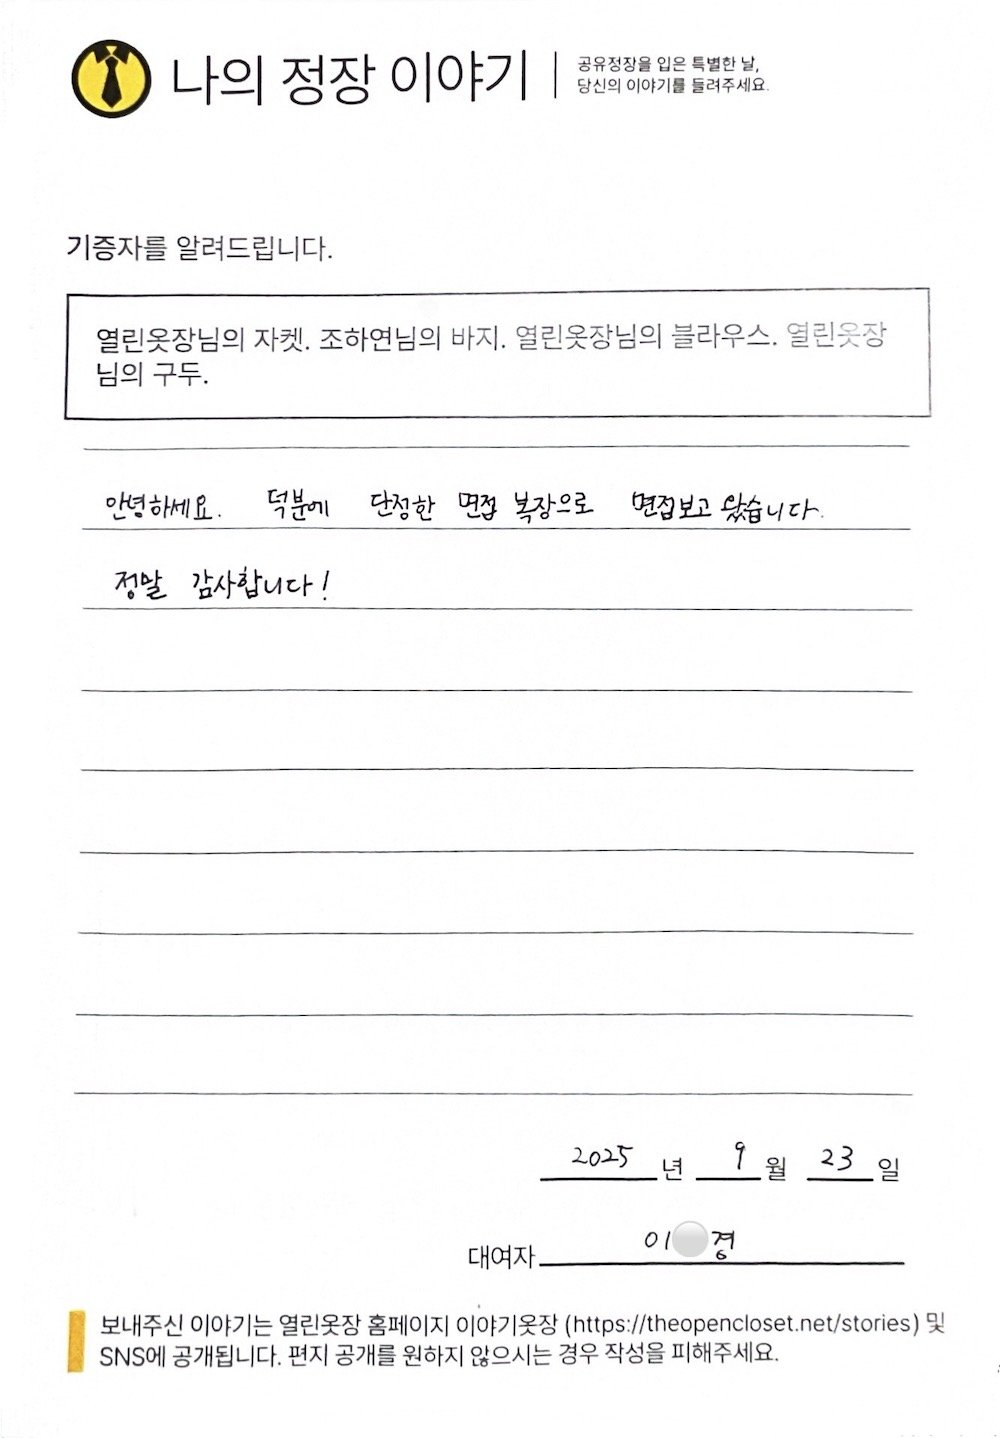 나의 정장 이야기
공유정장을 입은 특별한 날,
당신의 이야기를 들려주세요.
기증자를 알려드립니다.
열린옷장님의 자켓. 조하연님의 바지. 열린옷장님의 블라우스. 열린옷장
님의 구두.
안녕하세요. 덕분에 단정한 면접 복장으로 면접보고 왔습니다.
정말 감사합니다!
2025 년 9 월 23 일
대여자 이 경
보내주신 이야기는 열린옷장 홈페이지 이야기옷장 (https://theopencloset.net/stories) 및
SNS에 공개됩니다. 편지 공개를 원하지 않으시는 경우 작성을 피해주세요.